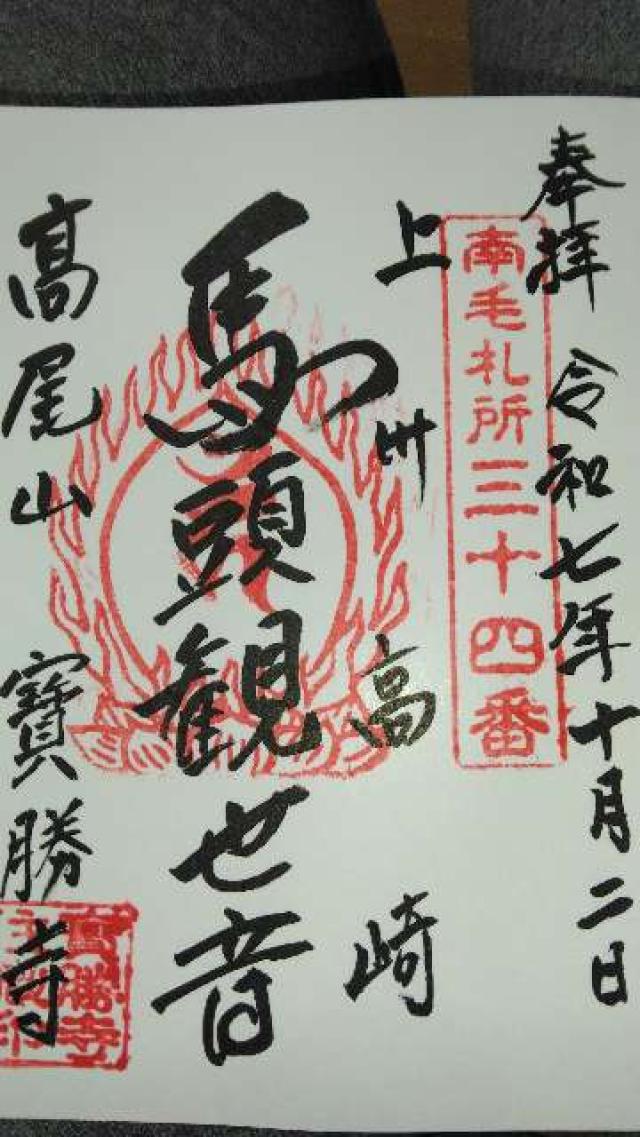 奉拝 令和七年十月二日
南毛札所三十四番
上州 高崎
馬頭観世音
高尾山 寶勝寺